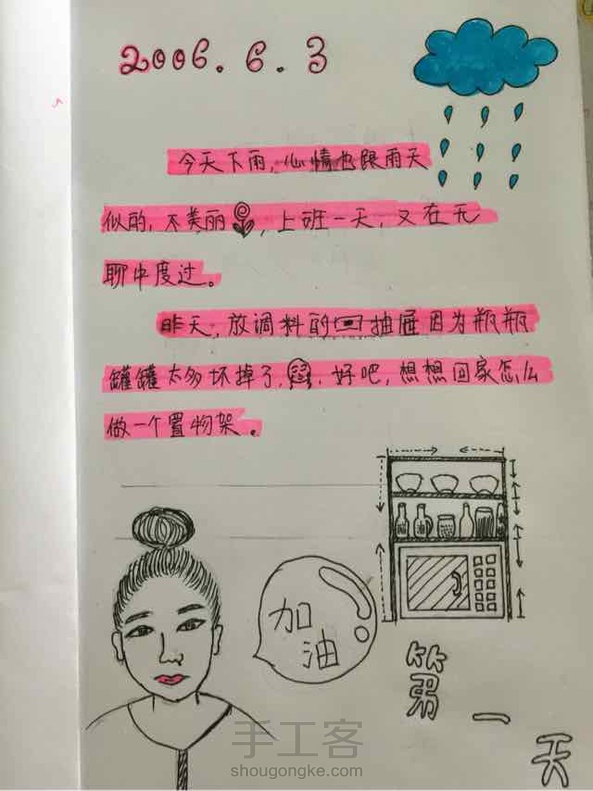 2006.6.3
今天下雨，心情也跟雨天
似的，不美丽，上班一天，又在无
聊中度过。
昨天，放调料的抽屉因为瓶瓶
罐罐太多坏掉了，好吧，想想回家怎么
做一个置物架。
加
油
第一天
手工客
shougongke.com